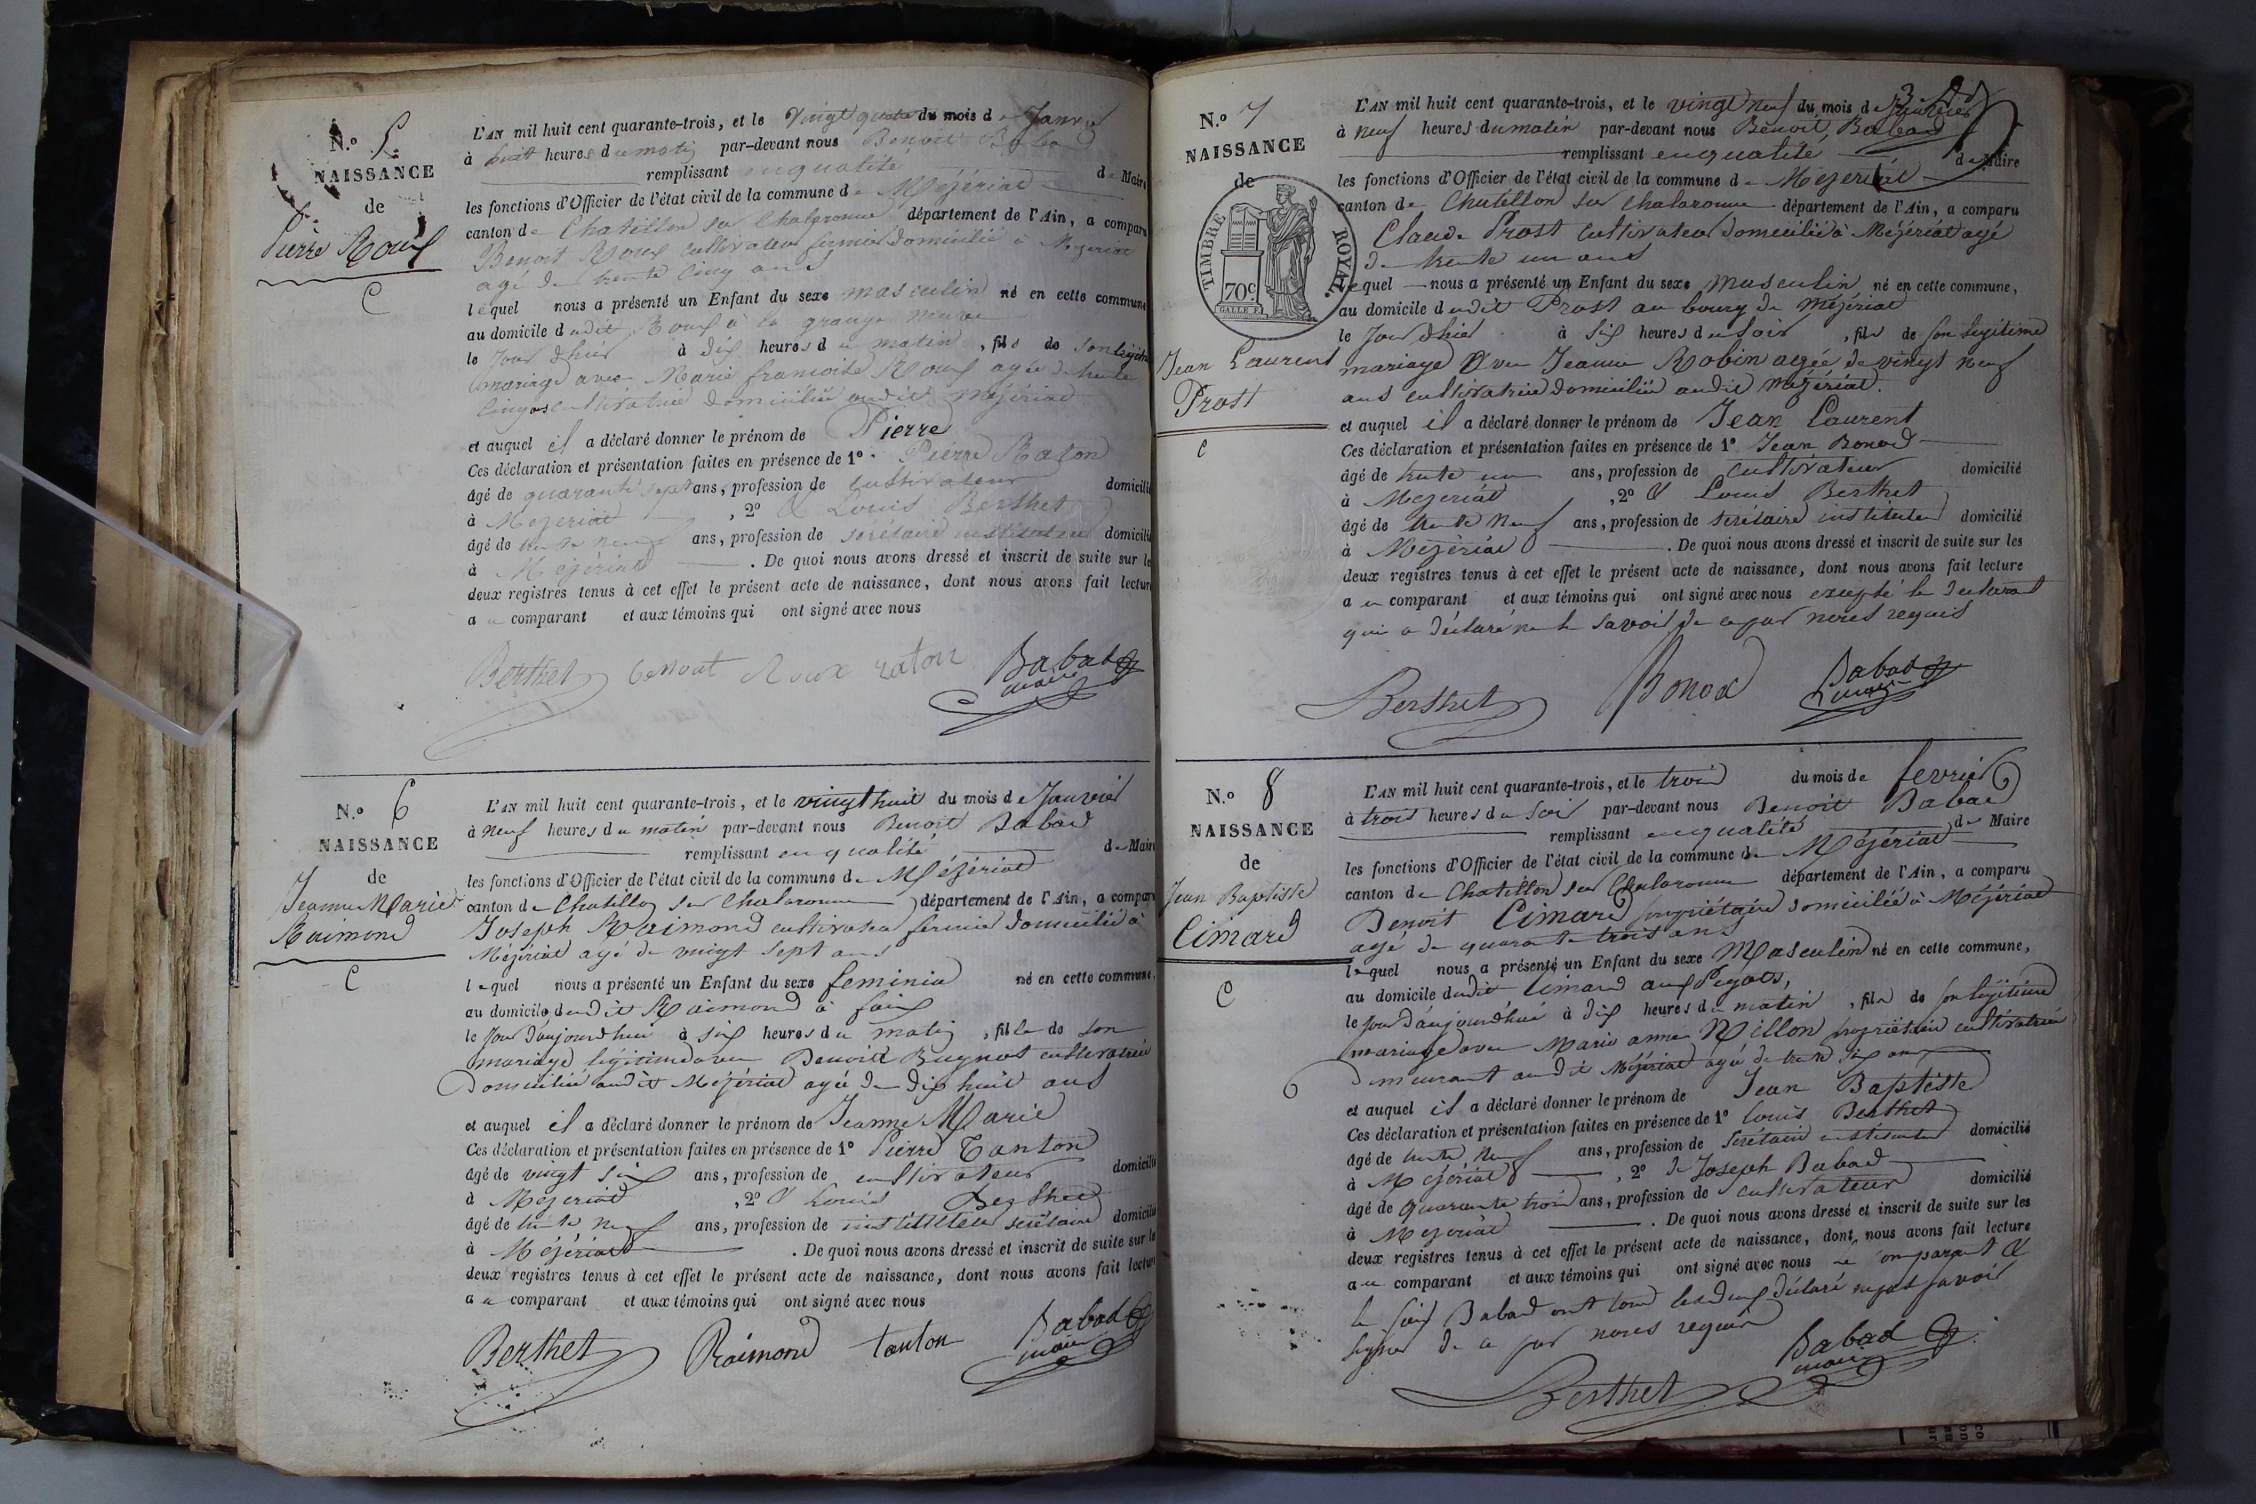 N.o 5.
NAISSANCE
de
Pierre Roux
C
L'AN mil huit cent quarante-trois, et le vingt quatre du mois de Janvier
à huit heures du matin par-devant nous Benoit Babad
remplissant en qualité de Maire
les fonctions d'Officier de l'état civil de la commune de Mézériat
canton de Chatillon sur Chalaronne département de l'Ain, a comparu
Benoit Roux cultivateur fermier domicilié à Mezeriat
agé de trente cinq ans
lequel nous a présenté un Enfant du sexe masculin né en cette commune
au domicile dudit Roux à la grange
le Jour d'hier à dix heures du matin, fils de son légitime
mariage avec Marie francoise Roux agée de trente
cinq ans cultivatrice domiciliée audit Mézériat
et auquel il a déclaré donner le prénom de Pierre
Ces déclaration et présentation faites en présence de 1º Pierre Raton
âgé de quarante sept ans, profession de cultivateur domicilié
à Mezeriat, 2º & Louis Berthet
âgé de trente neuf ans, profession de secrétaire instituteur domicilié
à Mézériat. De quoi nous avons dressé et inscrit de suite sur le
deux registres tenus à cet effet le présent acte de naissance, dont nous avons fait lecture
au comparant et aux témoins qui ont signé avec nous
Berthet benoat Roux raton Babad
maire
N.o 6
NAISSANCE
de
Jeanne Marie
Raimond
C
L'AN mil huit cent quarante-trois, et le vingt huit du mois de Janvier
à neuf heures du matin par-devant nous Benoit Babad
remplissant en qualité de Maire
les fonctions d'Officier de l'état civil de la commune de Mézériat
canton de Chatillon sur Chalaronne département de l'Ain, a comparu
Joseph Raimond cultivateur fermier domicilié à
Mézériat agé de vingt sept ans
lequel nous a présenté un Enfant du sexe feminin né en cette commune,
au domicile dudit Raimond à
le Jour d'aujourdhui à six heures du matin, fille de son
mariage légitime avec Benoite Bugnot cultivatrice
domiciliée audit Mézériat agée de dix huit ans
et auquel il a déclaré donner le prénom de Jeanne Marie
Ces déclaration et présentation faites en présence de 1º Pierre Tanton
âgé de vingt six ans, profession de cultivateur domicilié
à Mezeriat, 2º & Louis Berthet
âgé de trente neuf ans, profession de instituteur secrétaire domicilié
à Mézériat. De quoi nous avons dressé et inscrit de suite sur le
deux registres tenus à cet effet le présent acte de naissance, dont nous avons fait lecture
au comparant et aux témoins qui ont signé avec nous
Berthet Raimond tanton Babad
maire
3
N.o 7
NAISSANCE
de
TIMBRE ROYAL.
70c
GALLE F.
Jean Laurent
Prost
C
L'AN mil huit cent quarante-trois, et le vingt neuf du mois de Janvier
à neuf heures du matin par-devant nous Benoit Babad
remplissant en qualité de Maire
les fonctions d'Officier de l'état civil de la commune de Mezeriat
canton de Chatillon sur Chalaronne département de l'Ain, a comparu
Claude Prost cultivateur domicilié à Mézériat agé
de trente un ans
lequel nous a présenté un Enfant du sexe masculin né en cette commune,
au domicile dudit Prost au bourg de Mézériat
le Jour d'hier à six heures du soir, fils de son légitime
mariage avec Jeanne Robin agée de vingt neuf
ans cultivatrice domiciliée audit Mézériat.
et auquel il a déclaré donner le prénom de Jean Laurent
Ces déclaration et présentation faites en présence de 1º Jean Bonod
âgé de trente un ans, profession de cultivateur domicilié
à Mezeriat, 2º & Louis Berthet
âgé de trente neuf ans, profession de secrétaire instituteur domicilié
à Mézériat. De quoi nous avons dressé et inscrit de suite sur les
deux registres tenus à cet effet le présent acte de naissance, dont nous avons fait lecture
au comparant et aux témoins qui ont signé avec nous excepté le déclarant
qui a déclaré ne le savoir de ce par nous requis
Berthet Bonod Babad
maire
N.o 8
NAISSANCE
de
Jean Baptiste
Cimard
C
L'AN mil huit cent quarante-trois, et le trois du mois de fevrier
à trois heures du soir par-devant nous Benoit Babad
remplissant en qualité de Maire
les fonctions d'Officier de l'état civil de la commune de Mézériat
canton de Chatillon sur Chalaronne département de l'Ain, a comparu
Benoit Cimard propriétaire domicilié à Mézériat
agé de quarante trois ans
lequel nous a présenté un Enfant du sexe Masculin né en cette commune,
au domicile dudit Cimard aux Pegots,
le Jour d'aujourdhui à dix heures du matin, fils de son légitime
mariage avec Marie anne Millon propriétaire cultivatrice
demeurant audit Mézériat agée de trente six ans
et auquel il a déclaré donner le prénom de Jean Baptiste
Ces déclaration et présentation faites en présence de 1º Louis Berthet
âgé de trente neuf ans, profession de secrétaire instituteur domicilié
à Mézériat, 2º de Joseph Babad
âgé de quarante trois ans, profession de cultivateur domicilié
à Mezeriat. De quoi nous avons dressé et inscrit de suite sur les
deux registres tenus à cet effet le présent acte de naissance, dont nous avons fait lecture
au comparant et aux témoins qui ont signé avec nous le comparant &
le Babad ont tous les deux déclaré ne pas savoir
signer de ce par nous requis
Babad
maire
Berthet